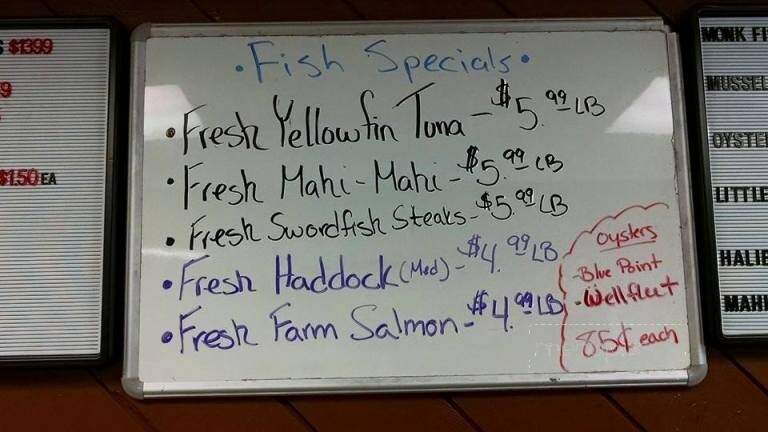 • Fish Specials •
• Fresh Yellowfin Tuna - $5.99 LB
• Fresh Mahi-Mahi - $5.99 LB
• Fresh Swordfish Steaks - $5.99 LB
• Fresh Haddock (Med) - $4.99 LB
• Fresh Farm Salmon - $4.99 LB
Oysters
- Blue Point
- Wellfleet
85¢ each
$1399
9
$1.50 EA
MONK FI
MUSSEL
OYSTE
LITTLE
HALIB
MAHI